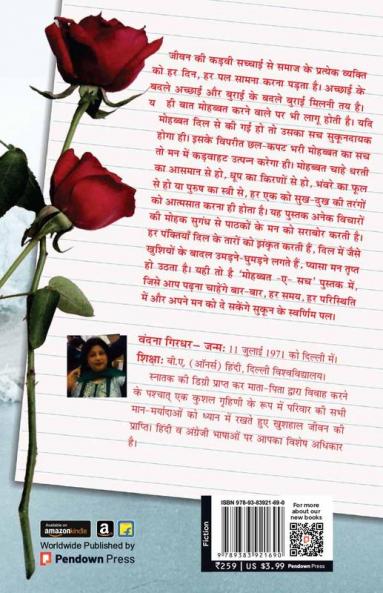 जीवन की कड़वी सच्चाई से समाज के प्रत्येक व्यक्ति
को हर दिन, हर पल सामना करना पड़ता है। अच्छाई के
बदले अच्छाई और बुराई के बदले बुराई मिलनी तय है।
य ही बात मोहब्बत करने वाले पर भी लागू होती है। यदि
मोहब्बत दिल से की गई हो तो उसका सच सुकूनदायक
होगा ही। इसके विपरीत छल-कपट भरी मोहब्बत का सच
तो मन में कड़वाहट उत्पन्न करेगा ही। मोहब्बत चाहे धरती
का आसमान से हो, धूप का किरणों से हो, भंवरे का फूल
से हो या पुरुष का स्त्री से, हर एक को सुख-दुख की तरंगों
को आत्मसात करना ही होता है। यह पुस्तक अनेक विचारों
की मोहक सुगंध से पाठकों के मन को सराबोर करती है।
हर पंक्तियाँ दिल के तारों को झंकृत करती हैं, दिल में जैसे
खुशियों के बादल उमड़ने-घुमड़ने लगते हैं, प्यासा मन तृप्त
हो उठता है। यही तो है 'मोहब्बत -ए- सच' पुस्तक में,
जिसे आप पढ़ना चाहेंगे बार-बार, हर समय, हर परिस्थिति
में और अपने मन को दे सकेंगे सुकून के स्वर्णिम पल।
वंदना गिरधर– जन्म: 11 जुलाई 1971 को दिल्ली में।
शिक्षा: बी.ए. (ऑनर्स) हिंदी, दिल्ली विश्वविद्यालय।
स्नातक की डिग्री प्राप्त कर माता-पिता द्वारा विवाह करने
के पश्चात् एक कुशल गृहिणी के रूप में परिवार की सभी
मान-मर्यादाओं को ध्यान में रखते हुए खुशहाल जीवन की
प्राप्ति। हिंदी व अंग्रेजी भाषाओं पर आपका विशेष अधिकार
है।
Available on
amazonkindle a
Worldwide Published by
Pendown Press
Fiction
ISBN 978-93-83921-69-0
9 789383 921690
₹259 | US $ 3.99
For more
about our
new books
Pendown Press